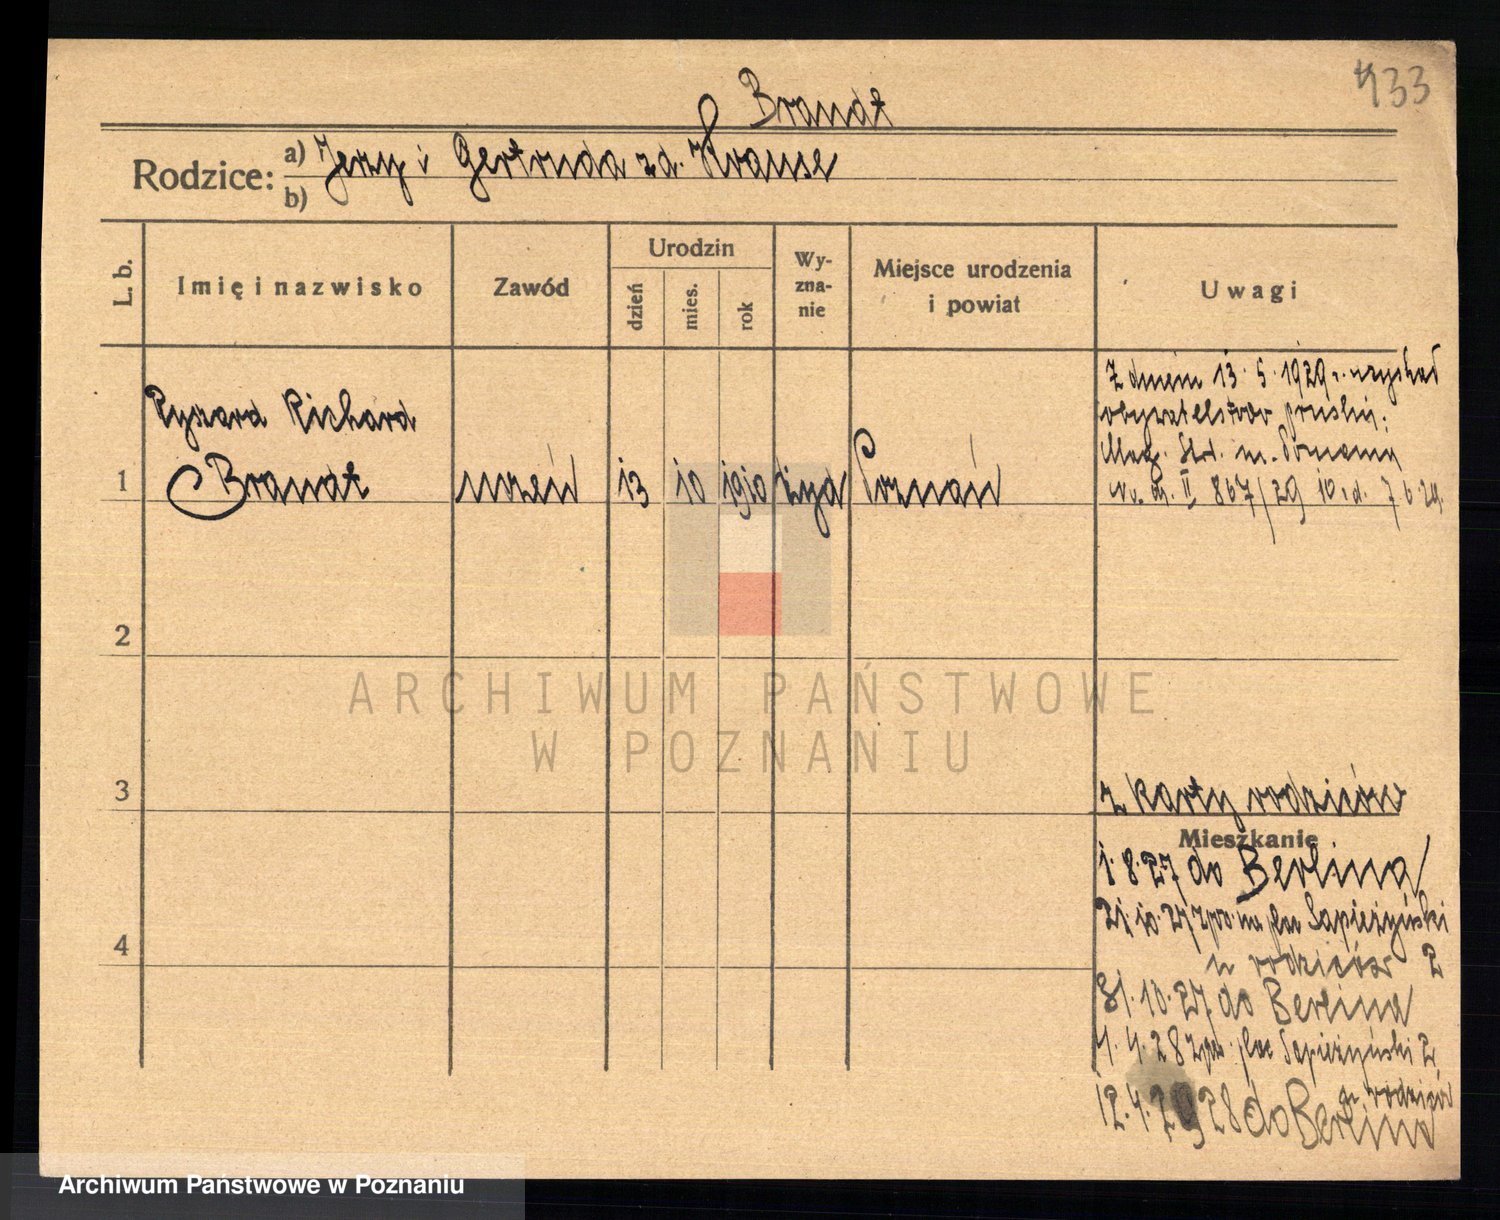 433
Brandt
Rodzice: a) Jerzy i Gertruda zd. Krause
b)
L. b.
Imię i nazwisko
Zawód
Urodzin
dzień
mies.
rok
Wy-
zna-
nie
Miejsce urodzenia
i powiat
Uwagi
Z dniem 13. 5. 1929 r. uzyskał
obywatelstwo pruskie;
Mag. St. m. Poznania
II 867/29 7 6 29.
Ryszard Richard
1 Brandt uczeń 13 10 1910 żyd Poznań
2
ARCHIWUM PAŃSTWOWE
W POZNANIU
3
z karty rodziców
Mieszkanie
1. 8. 27 do Berlina
21. 10. 27 na plac Sapieżyński
u rodziców 2
4
31. 10. 27 do Berlina
4. 4. 28 plac Sapieżyński 2
u rodziców
12. 4. 28 do Berlina
Archiwum Państwowe w Poznaniu